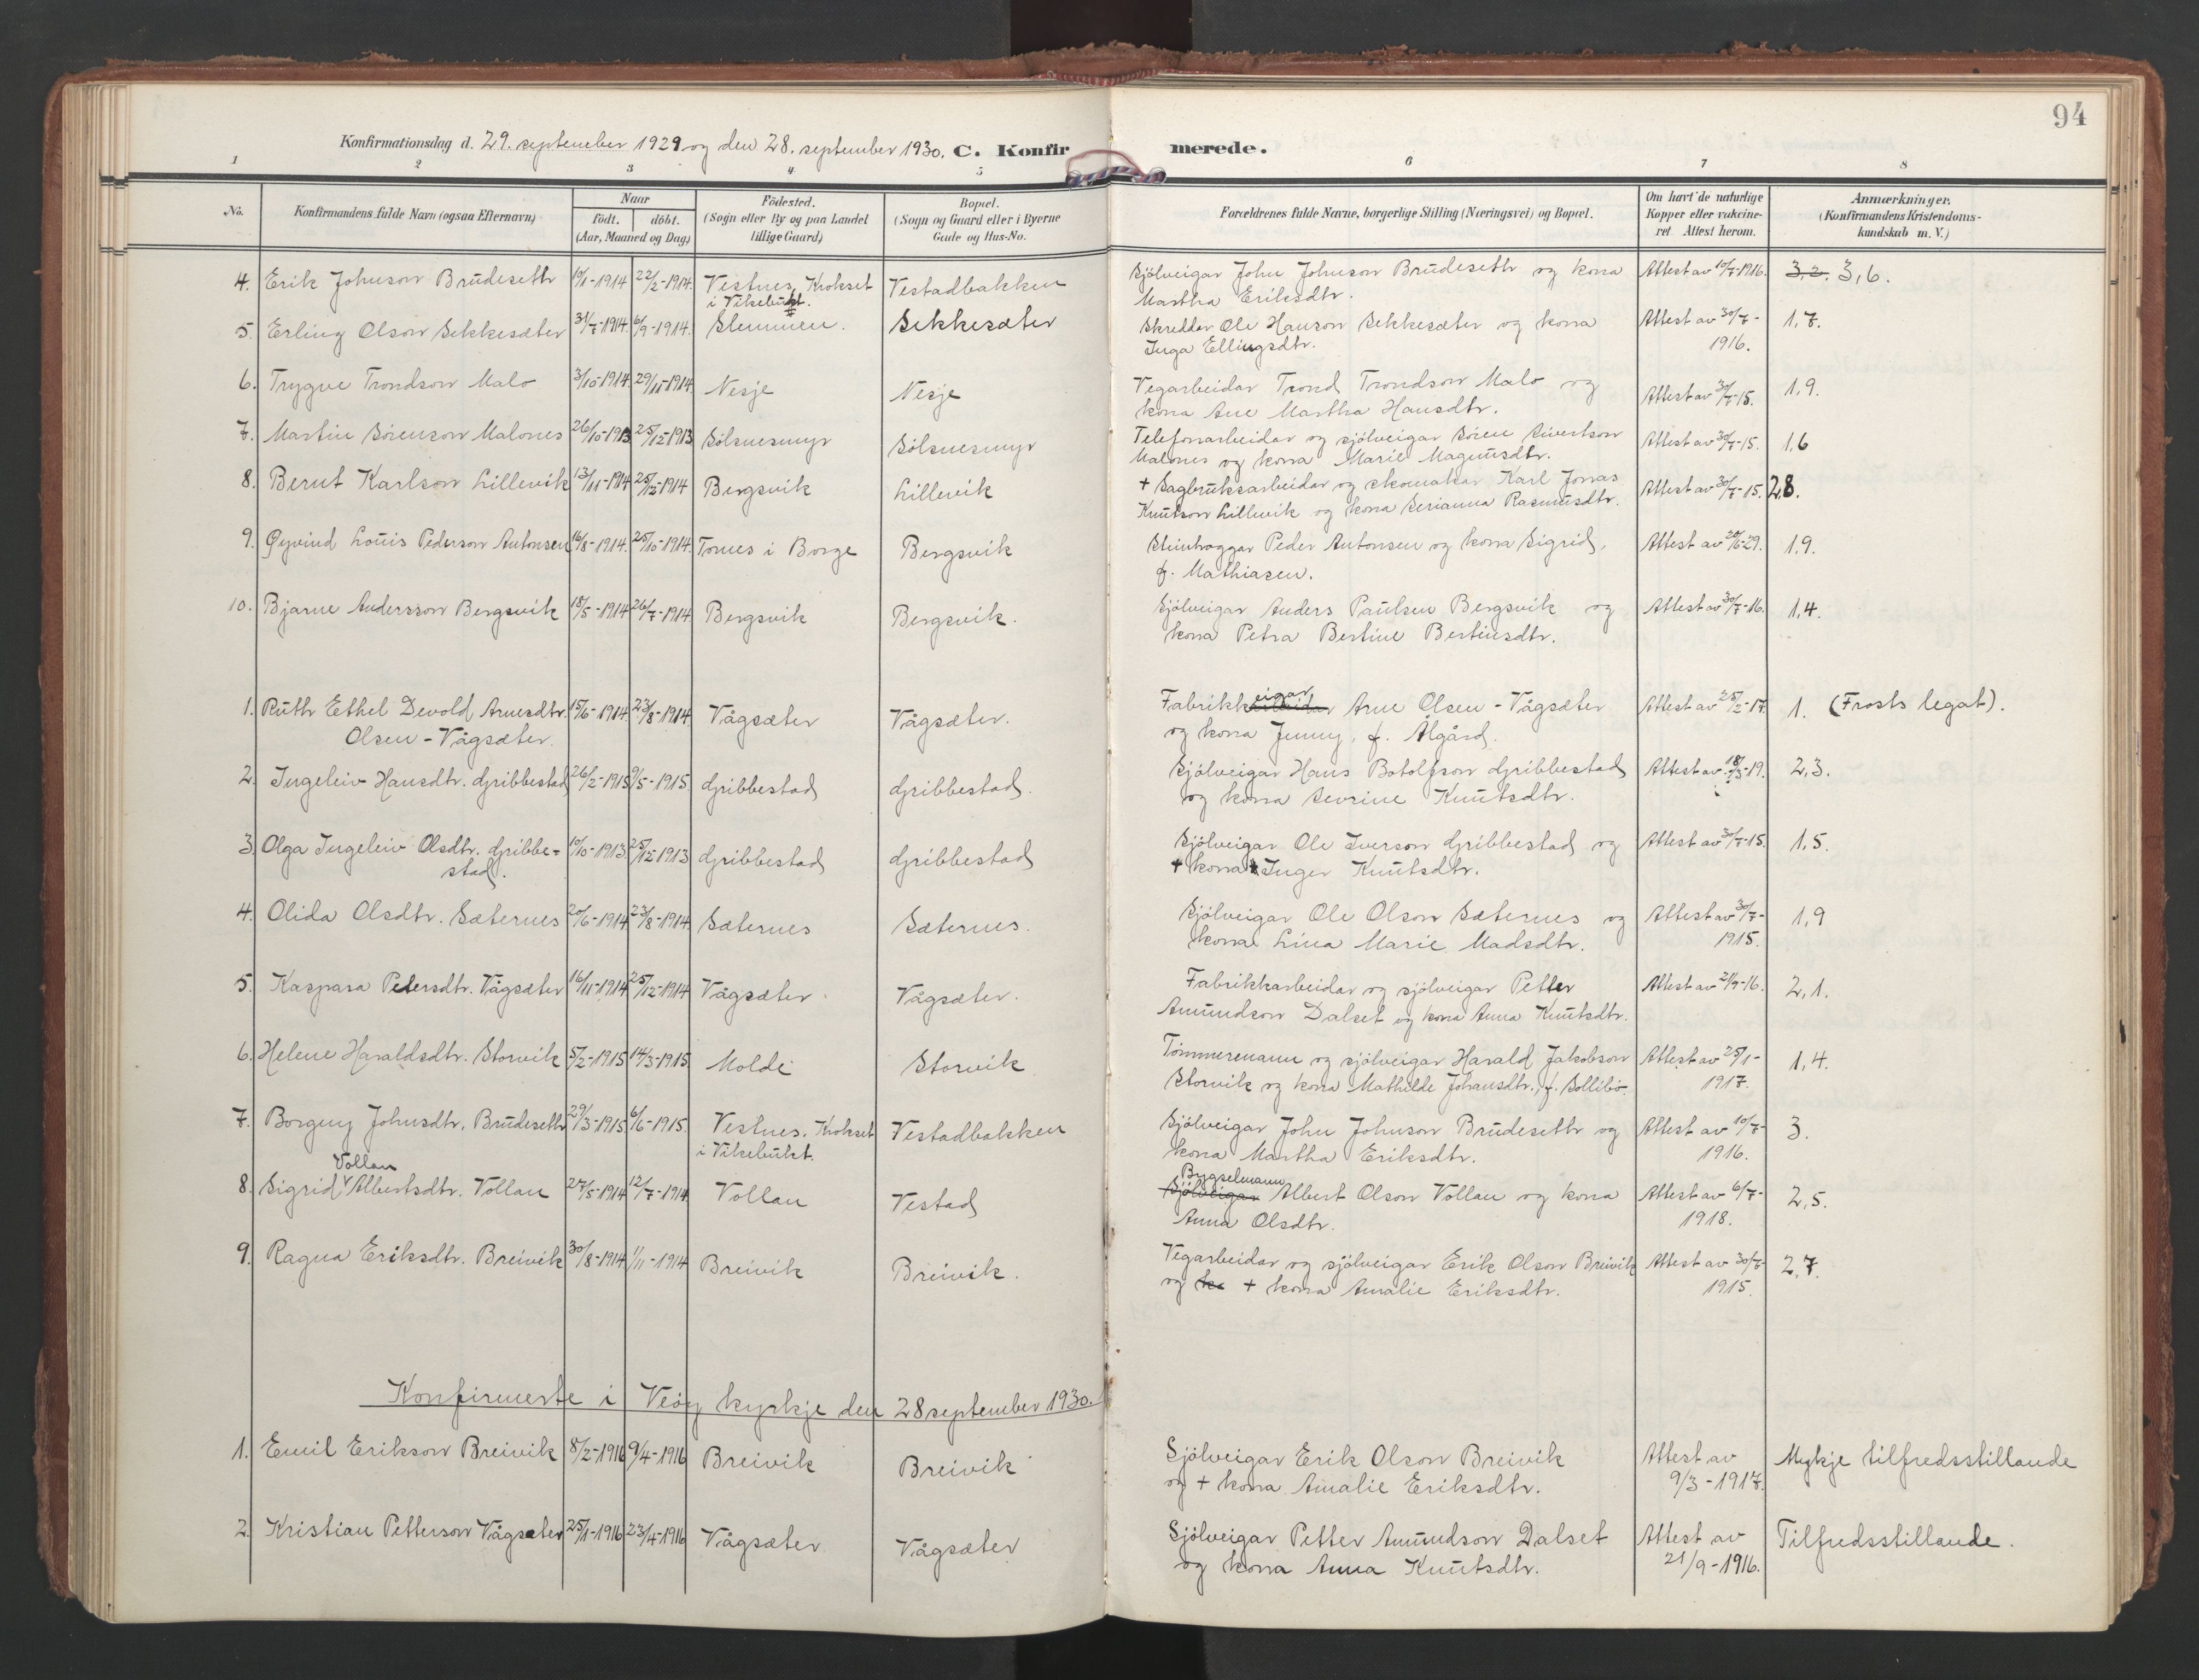 94
Konfirmationsdag d. 29. september 1929 og den 28. september 1930. C. Konfirmerede.
1 2 3 4 5 6 7 8
No. Konfirmandens fulde Navn (ogsaa Efternavn) Naar födt. döbt. (Aar, Maaned og Dag) Födested. (Sogn eller By og paa Landet tillige Gaard) Bopæl. (Sogn og Gaard eller i Byerne Gade og Hus-No. Forældrenes fulde Navne, borgerlige Stilling (Næringsvei) og Bopæl. Om havt de naturlige Kopper eller vakcineret. Attest herom. Anmærkninger. (Konfirmandens Kristendomskundskab m. V.)
4. Erik Johnson Brüdeseth 10/1-1914 22/2-1914. Vestnes, Krokset Vestadbakken Sjölveigar John Johnson Brüdeseth og kona Attest av 10/7-1916. 3,2. 3,6.
i Vikebukt. Martha Eriksdtr.
5. Erling Olson Sekkesæter 31/7-1914. 6/9-1914. Slemmen. Sekkesæter Skreddar Ole Hanson Sekkesæter og kona Attest av 30/7- 1,7.
Inga Ellingsdtr. 1916.
6. Trygve Trondson Malo 3/10-1914. 29/11-1914. Nesje Nesje Vegarbeidar Trond Trondson Malo og Attest av 30/7-15. 1,9.
kona Ane Martha Hansdtr.
7. Martin Sörenson Malones 26/10-1913 25/12-1913 Sölsnesmyr Sölsnesmyr Telefonarbeidar og sjölveigar Sören Sivertson Attest av 30/7-15. 1,6
Malones og kona Marie Magnüsdtr.
8. Bernt Karlson Lillevik 13/11-1914 25/12-1914 Bergsvik Lillevik + Sagbrüksarbeidar og skomakar Karl Jonas Attest av 30/7-15. 2,8.
Knütson Lillevik og kona Serianna Rasmüsdtr.
9. Øyvind Louis Pederson Antonsen 16/8-1914. 25/10-1914. Tomes i Borge Bergsvik Steinhoggar Peder Antonsen og kona Sigrid, Attest av 20/6-29. 1,9.
f. Mathiasen.
10. Bjarne Andersson Bergsvik 18/5-1914 26/7-1914. Bergsvik Bergsvik. Sjölveigar Anders Paulsen Bergsvik og Attest av 30/7-16. 1,4.
kona Petra Bertine Bertinsdtr.
1. Rüth Ethel Devold Arnesdtr. 15/6-1914. 23/8-1914. Vågsæter Vågsæter. Fabrikkeigar Arne Olsen-Vågsæter Attest av 25/2-17. 1. (Frosts legat).
Olsen-Vågsæter. og kona Jenny, f. Ålgård.
2. Ingeleiv Hansdtr. Gribbestad 26/2-1915 9/5-1915. Gribbestad Gribbestad. Sjölveigar Hans Botolfson Gribbestad Attest av 18/3-19. 2,3.
og kona Sevrine Knütsdtr.
3. Olga Ingeleiv Olsdtr. Gribbe= 10/10-1913. 25/12-1913 Gribbestad Gribbestad Sjölveigar Ole Iverson Gribbestad og Attest av 30/7-15. 1,5.
stad. + kona Inger Knütsdtr.
4. Olida Olsdtr. Sæternes 20/6-1914 23/8-1914. Sæternes Sæternes. Sjölveigar Ole Olson Sæternes og Attest av 30/7- 1,9
kona Lina Marie Madsdtr. 1915.
5. Kaspara Petersdtr. Vågsæter 16/11-1914 25/12-1914 Vågsæter. Vågsæter. Fabrikkarbeidar og sjölveigar Petter Attest av 21/9-16. 2,1.
Amündson Dalset og kona Anna Knütsdtr.
6. Helene Haraldsdtr. Storvik 5/2-1915 14/3-1915. Molde Storvik Tömmermann og sjölveigar Harald Jakobson Attest av 25/1- 1,4.
Storvik og kona Mathilde Johansdtr., f. Sollibö. 1917.
7. Borgny Johnsdtr. Brüdeseth 29/3-1915 6/6-1915. Vestnes, Krokset Vestadbakken Sjölveigar John Johnson Brüdeseth og Attest av 10/7- 3.
i Vikebükt. kona Martha Eriksdtr. 1916.
Vollan Bygselmann
8. Sigrid Albertsdtr. Vollan 27/5-1914 12/7-1914. Vollan Vestad Sjölveigar Albert Olson Vollan og kona Attest av 6/7- 2,5.
Anna Olsdtr. 1918.
9. Ragna Eriksdtr. Breivik 30/8-1914 1/11-1914 Breivik Breivik. Vegarbeidar og sjölveigar Erik Olson Breivik Attest av 30/7- 2,7.
og ko + kona Amalie Eriksdtr. 1915.
Konfirmerte i Veöy kyrkje den 28 september 1930.
1. Emil Erikson Breivik 8/2-1916 9/4-1916 Breivik Breivik Sjölveigar Erik Olson Breivik Attest av Mykje tilfredsstillande
og + kona Amalie Eriksdtr. 9/3-1917.
2. Kristian Petterson Vågsæter 25/1-1916 23/4-1916 Vågsæter Vågsæter Sjölveigar Petter Amündson Dalset Attest av Tilfredsstillande.
og kona Anna Knütsdtr. 21/9-1916.